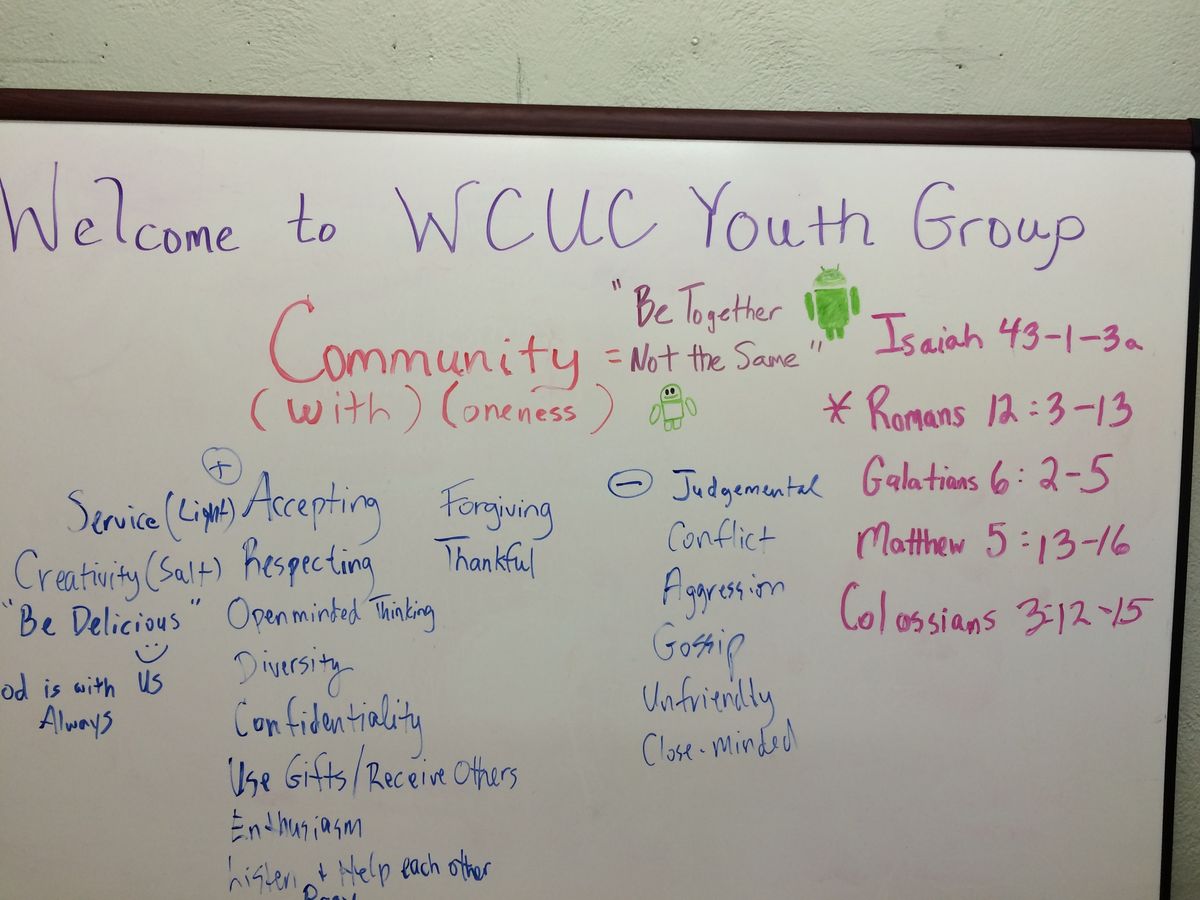 Welcome to WCUC Youth Group
Community
(with) (oneness)
= "Be Together
Not the Same"
+
Service (Light)
Creativity (Salt)
"Be Delicious"
od is with Us
Always
Accepting
Respecting
Openminded Thinking
Diversity
Confidentiality
Use Gifts/Receive Others
Enthusiasm
Listen + Help each other
Forgiving
Thankful
- Judgemental
Conflict
Aggression
Gossip
Unfriendly
Close-minded
Isaiah 43-1-3a
* Romans 12:3-13
Galatians 6:2-5
Matthew 5:13-16
Colossians 3:12-15